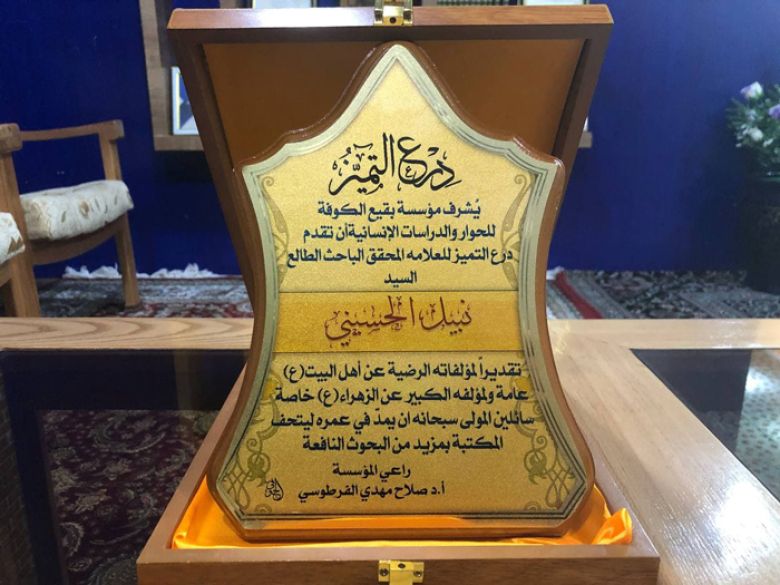 درع التميّز
يُشرف مؤسسة بقيع الكوفة
للحوار والدراسات الإنسانية أن تقدم
درع التميز للعلامه المحقق الباحث الطالع
السيد
نبيل الحسيني
تقديراً لمؤلفاته الرضية عن أهل البيت(ع)
عامة ومؤلفه الكبير عن الزهراء(ع) خاصة
سائلين المولى سبحانه ان يمدّ في عمره ليتحف
المكتبة بمزيد من البحوث النافعة
راعي المؤسسة
أ.د صلاح مهدي الفرطوسي